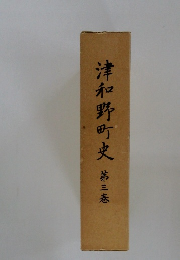 津和野町史 第三巻